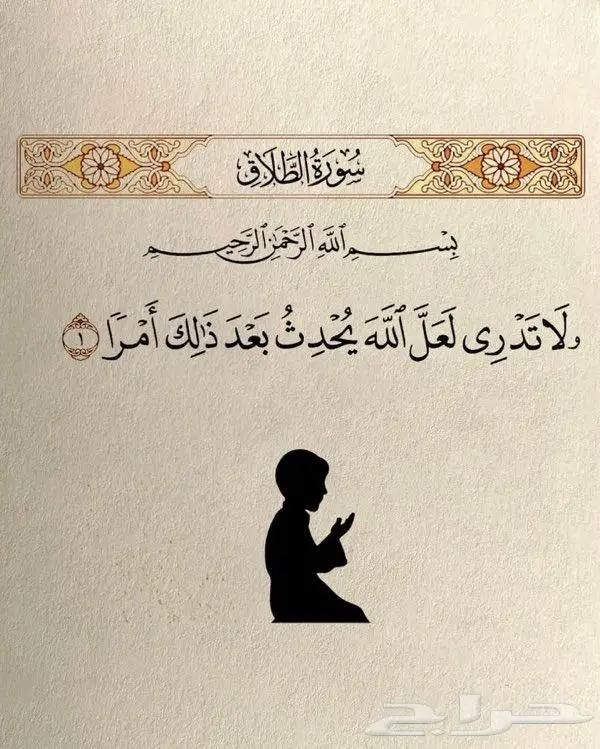 سُورَةُ الطَّلَاقِ
بِسْمِ ٱللَّهِ ٱلرَّحْمَٰنِ ٱلرَّحِيمِ
وَلَا تَدْرِى لَعَلَّ ٱللَّهَ يُحْدِثُ بَعْدَ ذَٰلِكَ أَمْرَا ١
حراج